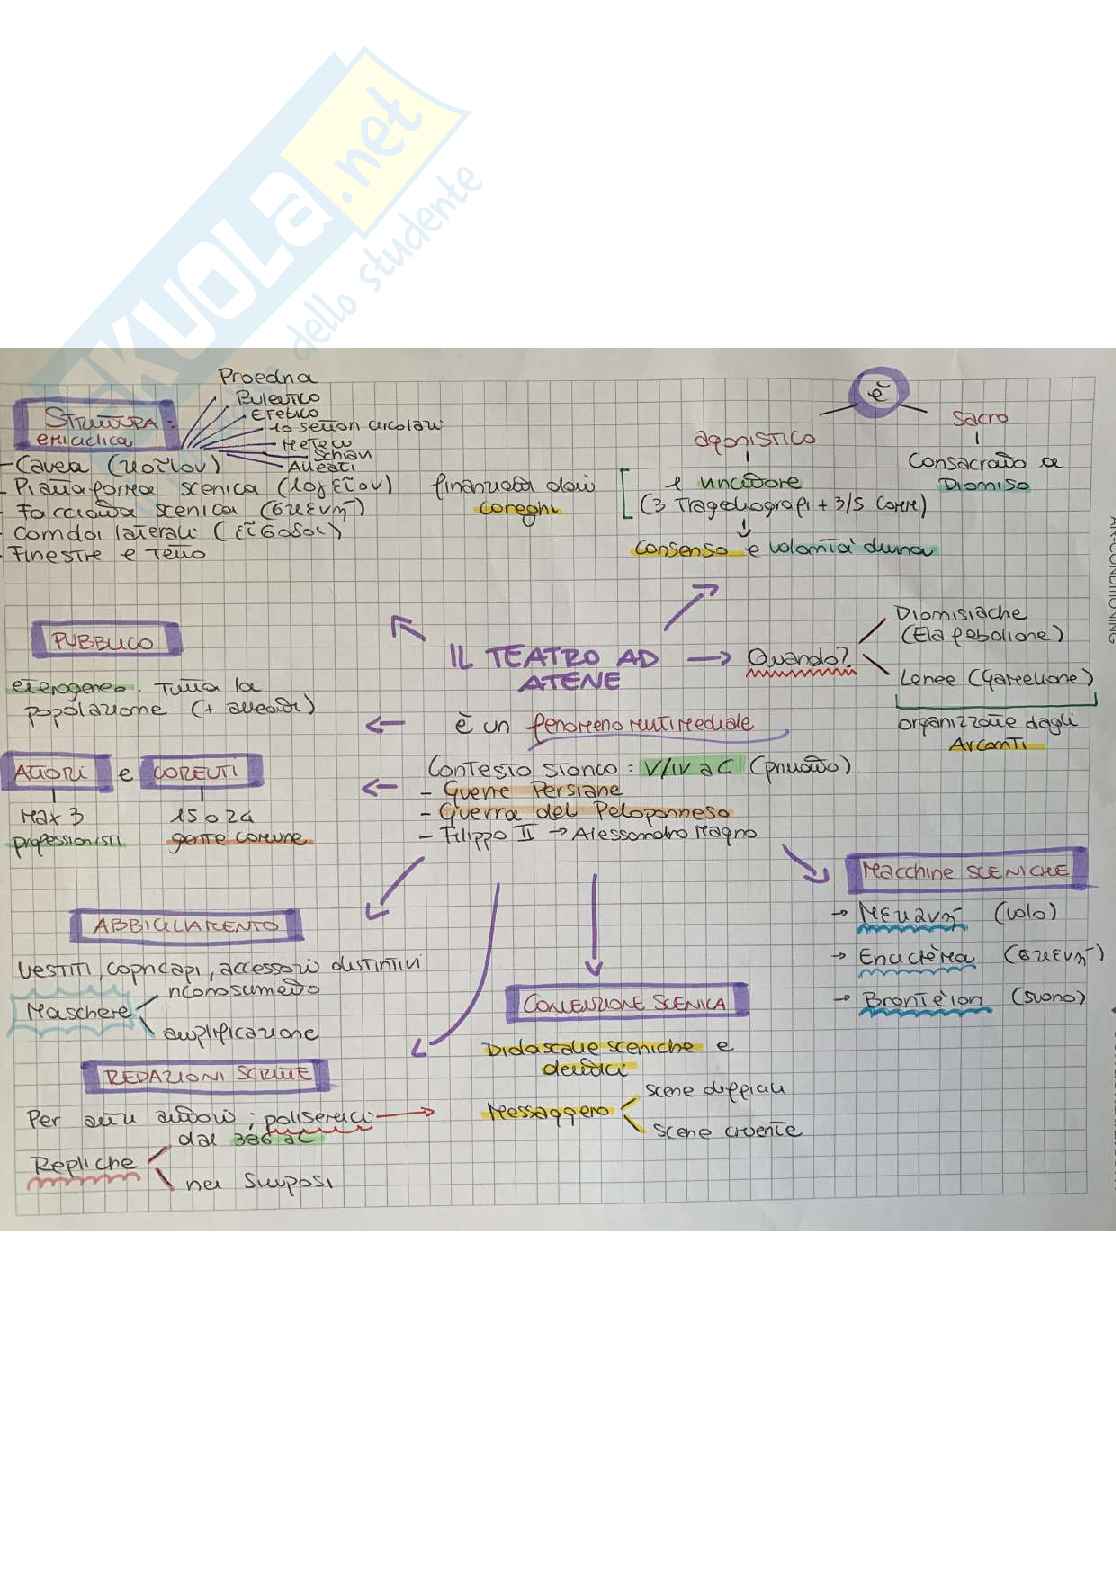 SKUOLA.net
dello studente
Proedria
Buleutico
Efebico
10 settori circolari
Meteci
Schiavi
Alleati
STRUTTURA:
emiciclica
- Cavea (κοῖλον)
- Piattaforma scenica (λογεῖον)
- Facciata scenica (σκενή)
- Corridoi laterali (εἴσοδοι)
- Finestre e Tetto
è
agonistico
è vincitore
(3 Tragediografi + 3/5 Comm)
finanziata dai
coreghi
consenso e volontà divina
Sacro
Consacrato a
Dioniso
PUBBLICO
eterogeneo. Tutta la
popolazione (+ alleati)
IL TEATRO AD
ATENE
Quando?
Dionisiache
(Elafebolione)
Lenee (Gamelione)
organizzate dagli
Arconti
è un fenomeno multimediale
ATTORI e COREUTI
Max 3
professionisti
15 o 24
gente comune
Contesto storico: V/IV a.C (privato)
- Guerre Persiane
- Guerra del Peloponneso
- Filippo II → Alessandro Magno
MACCHINE SCENICHE
→ Mekanή (volo)
→ Enciclema (σκενή)
→ Brontèion (suono)
ABBIGLIAMENTO
vestiti, copricapi, accessori distintivi
Maschere
riconoscimento
amplificazione
CONVENZIONE SCENICA
Didascalie sceniche e
deittici
Messaggero
scene difficili
scene cruente
REDAZIONI SCRITTE
Per altri attori; polisemici
Repliche
dal 386 aC
nei Simposi